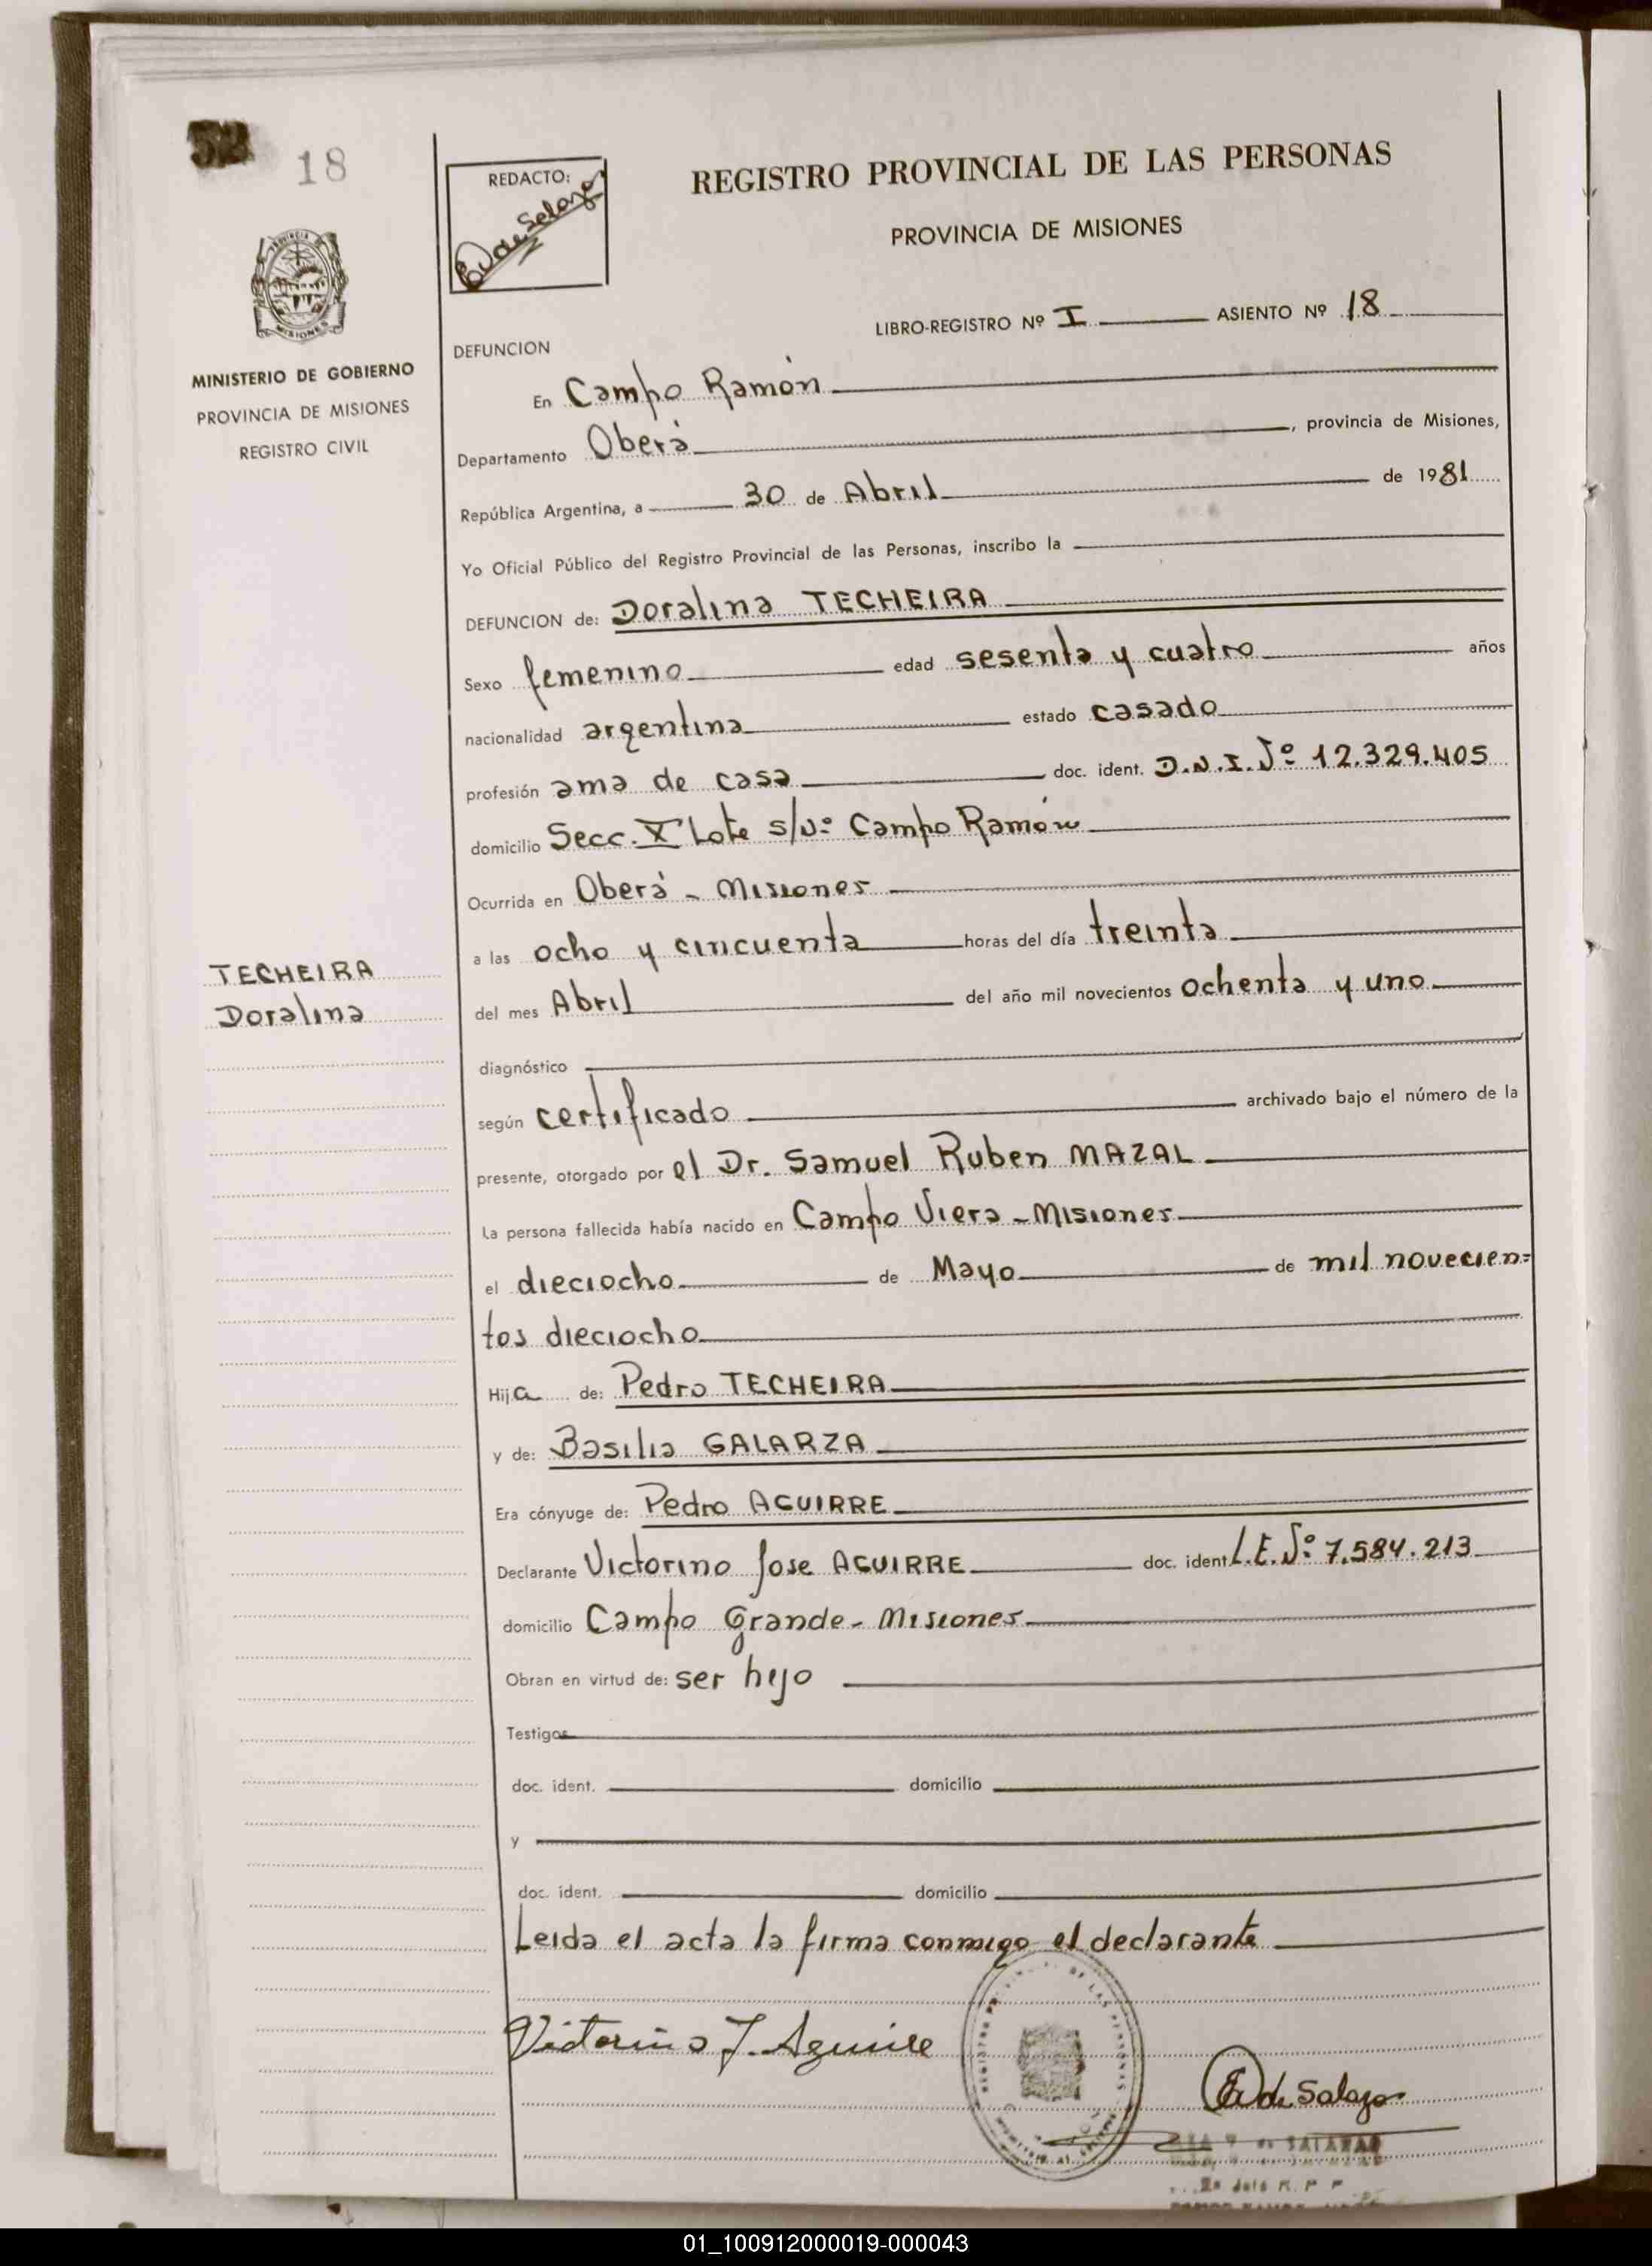 18
REDACTO:
REGISTRO PROVINCIAL DE LAS PERSONAS
PROVINCIA DE MISIONES
MISIONES
MINISTERIO DE GOBIERNO
PROVINCIA DE MISIONES
REGISTRO CIVIL
LIBRO-REGISTRO Nº I ASIENTO Nº 18
DEFUNCION
En Campo Ramón
Departamento Oberá, provincia de Misiones,
República Argentina, a 30 de Abril de 1981
Yo Oficial Público del Registro Provincial de las Personas, inscribo la
DEFUNCION de: Doralina TECHEIRA
Sexo femenino edad sesenta y cuatro años
nacionalidad argentina estado casado
profesión ama de casa doc. ident. D.N.I. Nº 12.329.405
domicilio Secc. X Lote s/Nº Campo Ramón
Ocurrida en Oberá - Misiones
a las ocho y cincuenta horas del día treinta
TECHEIRA
Doralina
del mes Abril del año mil novecientos ochenta y uno
diagnóstico
según certificado archivado bajo el número de la
presente, otorgado por el Dr. Samuel Ruben MAZAL
La persona fallecida había nacido en Campo Viera - Misiones
el dieciocho de Mayo de mil novecien=
tos dieciocho
Hija de: Pedro TECHEIRA
y de: Basilia GALARZA
Era cónyuge de: Pedro AGUIRRE
Declarante Victorino Jose AGUIRRE doc. ident L.E. Nº 7.584.213
domicilio Campo Grande - Misiones
Obran en virtud de: ser hijo
Testigos
doc. ident. domicilio
y
doc. ident. domicilio
Leida el acta la firma conmigo el declarante
Victorino J. Aguirre
de Salazar
01_100912000019-000043